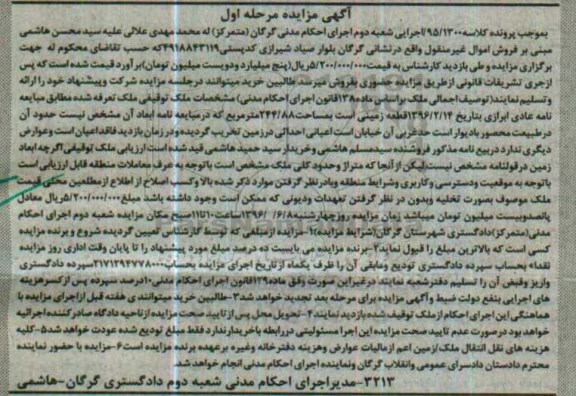 آگهی مزایده مرحله اول
بموجب پرونده کلاسه ۹۵/۱۳۰۰اجرایی شعبه دوم اجرای احکام مدنی گرگان (متمرکز) له محمد مهدی علائی علیه سید محسن هاشمی
مبنی بر فروش اموال غیرمنقول واقع در نشانی گرگان بلوار صیاد شیرازی کدپستی ۴۹۱۸۸۴۳۱۱۹که حسب تقاضای محکوم له جهت
برگزاری مزایده و طی بازدید کارشناس به قیمت ۵/۲۰۰/۰۰۰/۰۰۰ریال(پنج میلیارد و دویست میلیون تومان)برآورد قیمت شده است که پس
ازجری تشریفات قانونی ازطریق مزایده حضوری بفروش میرسد طالبین خرید میتوانند درجلسه مزایده شرکت وپیشنهاد خود را ارائه
و تسلیم نمایند(توصیف اجمالی ملک براساس ماده۱۳۸قانون اجرای احکام مدنی) مشخصات ملک توقیفی ملک تعرفه شده مطابق مبایعه
نامه عادی ابرازی بتاریخ ۱۳۹۶/۲/۱۴ قطعه زمینی است بمساحت۲۴۴/۸۸مترمربع که درمبایعه نامه ابعاد آن مشخص نیست حدود آن
درطبیعت محصور بادیوار است حدغربی آن خیابان است اعیانی احداثی درزمین تخریب گردیده ودر زمان بازدید فاقداعیان است وعوارض
دیگری ندارد دربیع نامه مذکور فروشنده سیدمسلم هاشمی وخریدار سید حمید هاشمی قید شده است ارزیابی ملک توقیفی اگرچه ابعاد
زمین درقولنامه مشخص نیست لیکن از آنجا که متراژ وحدود کلی ملک مشخص است باتوجه به عرف معاملات منطقه قابل ارزیابی است
باتوجه به موقعیت ودسترسی وکاربری وشرایط منطقه وبادرنظر گرفتن موارد ذکر شده بالا وکسب اصلاح از اطلاع ازمطلعین محلی قیمت
ملک موصوف بصورت تخلیه وبدون در نظر گرفتن تعهدات ودیونی که ممکن است وجود داشته باشد مبلغ ۵/۲۰۰/۰۰۰/۰۰۰ریال معادل
پانصدوبیست میلیون تومان میباشد زمان مزایده روزچهارشنبه ۱۳۹۶/ ۱۶/۸ساعت ۱۰تا۱۱صبح مکان مزایده شعبه دوم اجرای احکام
مدنی(متمرکز)دادگستری شهرستان گرگان(شرایط مزایده)۱-مزایده از مبلغی که توسط کارشناس تعیین گردیده شروع و برنده مزایده
کسی است که بالاترین مبلغ را قبول نماید۲-برنده مزایده می بایست ده درصد مبلغ مورد پیشنهاد را تا پایان وقت اداری روز مزایده
نقدا به حساب سپرده دادگستری تودیع ومابقی آن را ظرف یکماه ازتاریخ اجرای مزایده بحساب۲۱۷۱۲۹۴۷۷۸۰۰۰سپرده دادگستری
واریز وقبض آن را تسلیم دفترشعبه نمایند درغیراین صورت وفق ماده۱۲۹قانون اجرای احکام مدنی۱۰درصد سپرده پس ازکسرهزینه
های اجرایی بنفع دولت ضبط وآگهی مزایده برای مرحله بعد تجدید خواهد شد۳-طالبین خرید میتوانندی هفته قبل ازاجرای مزایده با
هماهنگی این اجرای احکام ازملک توقیف شده بازدید نمایند۴-تحویل محل پس ازتایید صحت مزایده ازناحیه دادگاه صادرکننده اجرائیه
خواهد بود درصورت عدم تایید صحت مزایده این اجرا مسئولیتی دررابطه باخریدارندارد فقط مبلغ تودیع شده عودت خواهد شد۵-کلیه
هزینه های نقل انتقال ملک/زمین اعم ازمالیات عوارض وهزینه دفترخانه وغیره برعهده برنده مزایده است۶-مزایده با حضور نماینده
محترم دادستان دادسرای عمومی وانقلاب گرگان ونماینده اجرای احکام مدنی انجام خواهد شد.
۳۲۱۳-مدیراجرای احکام مدنی شعبه دوم دادگستری گرگان-هاشمی